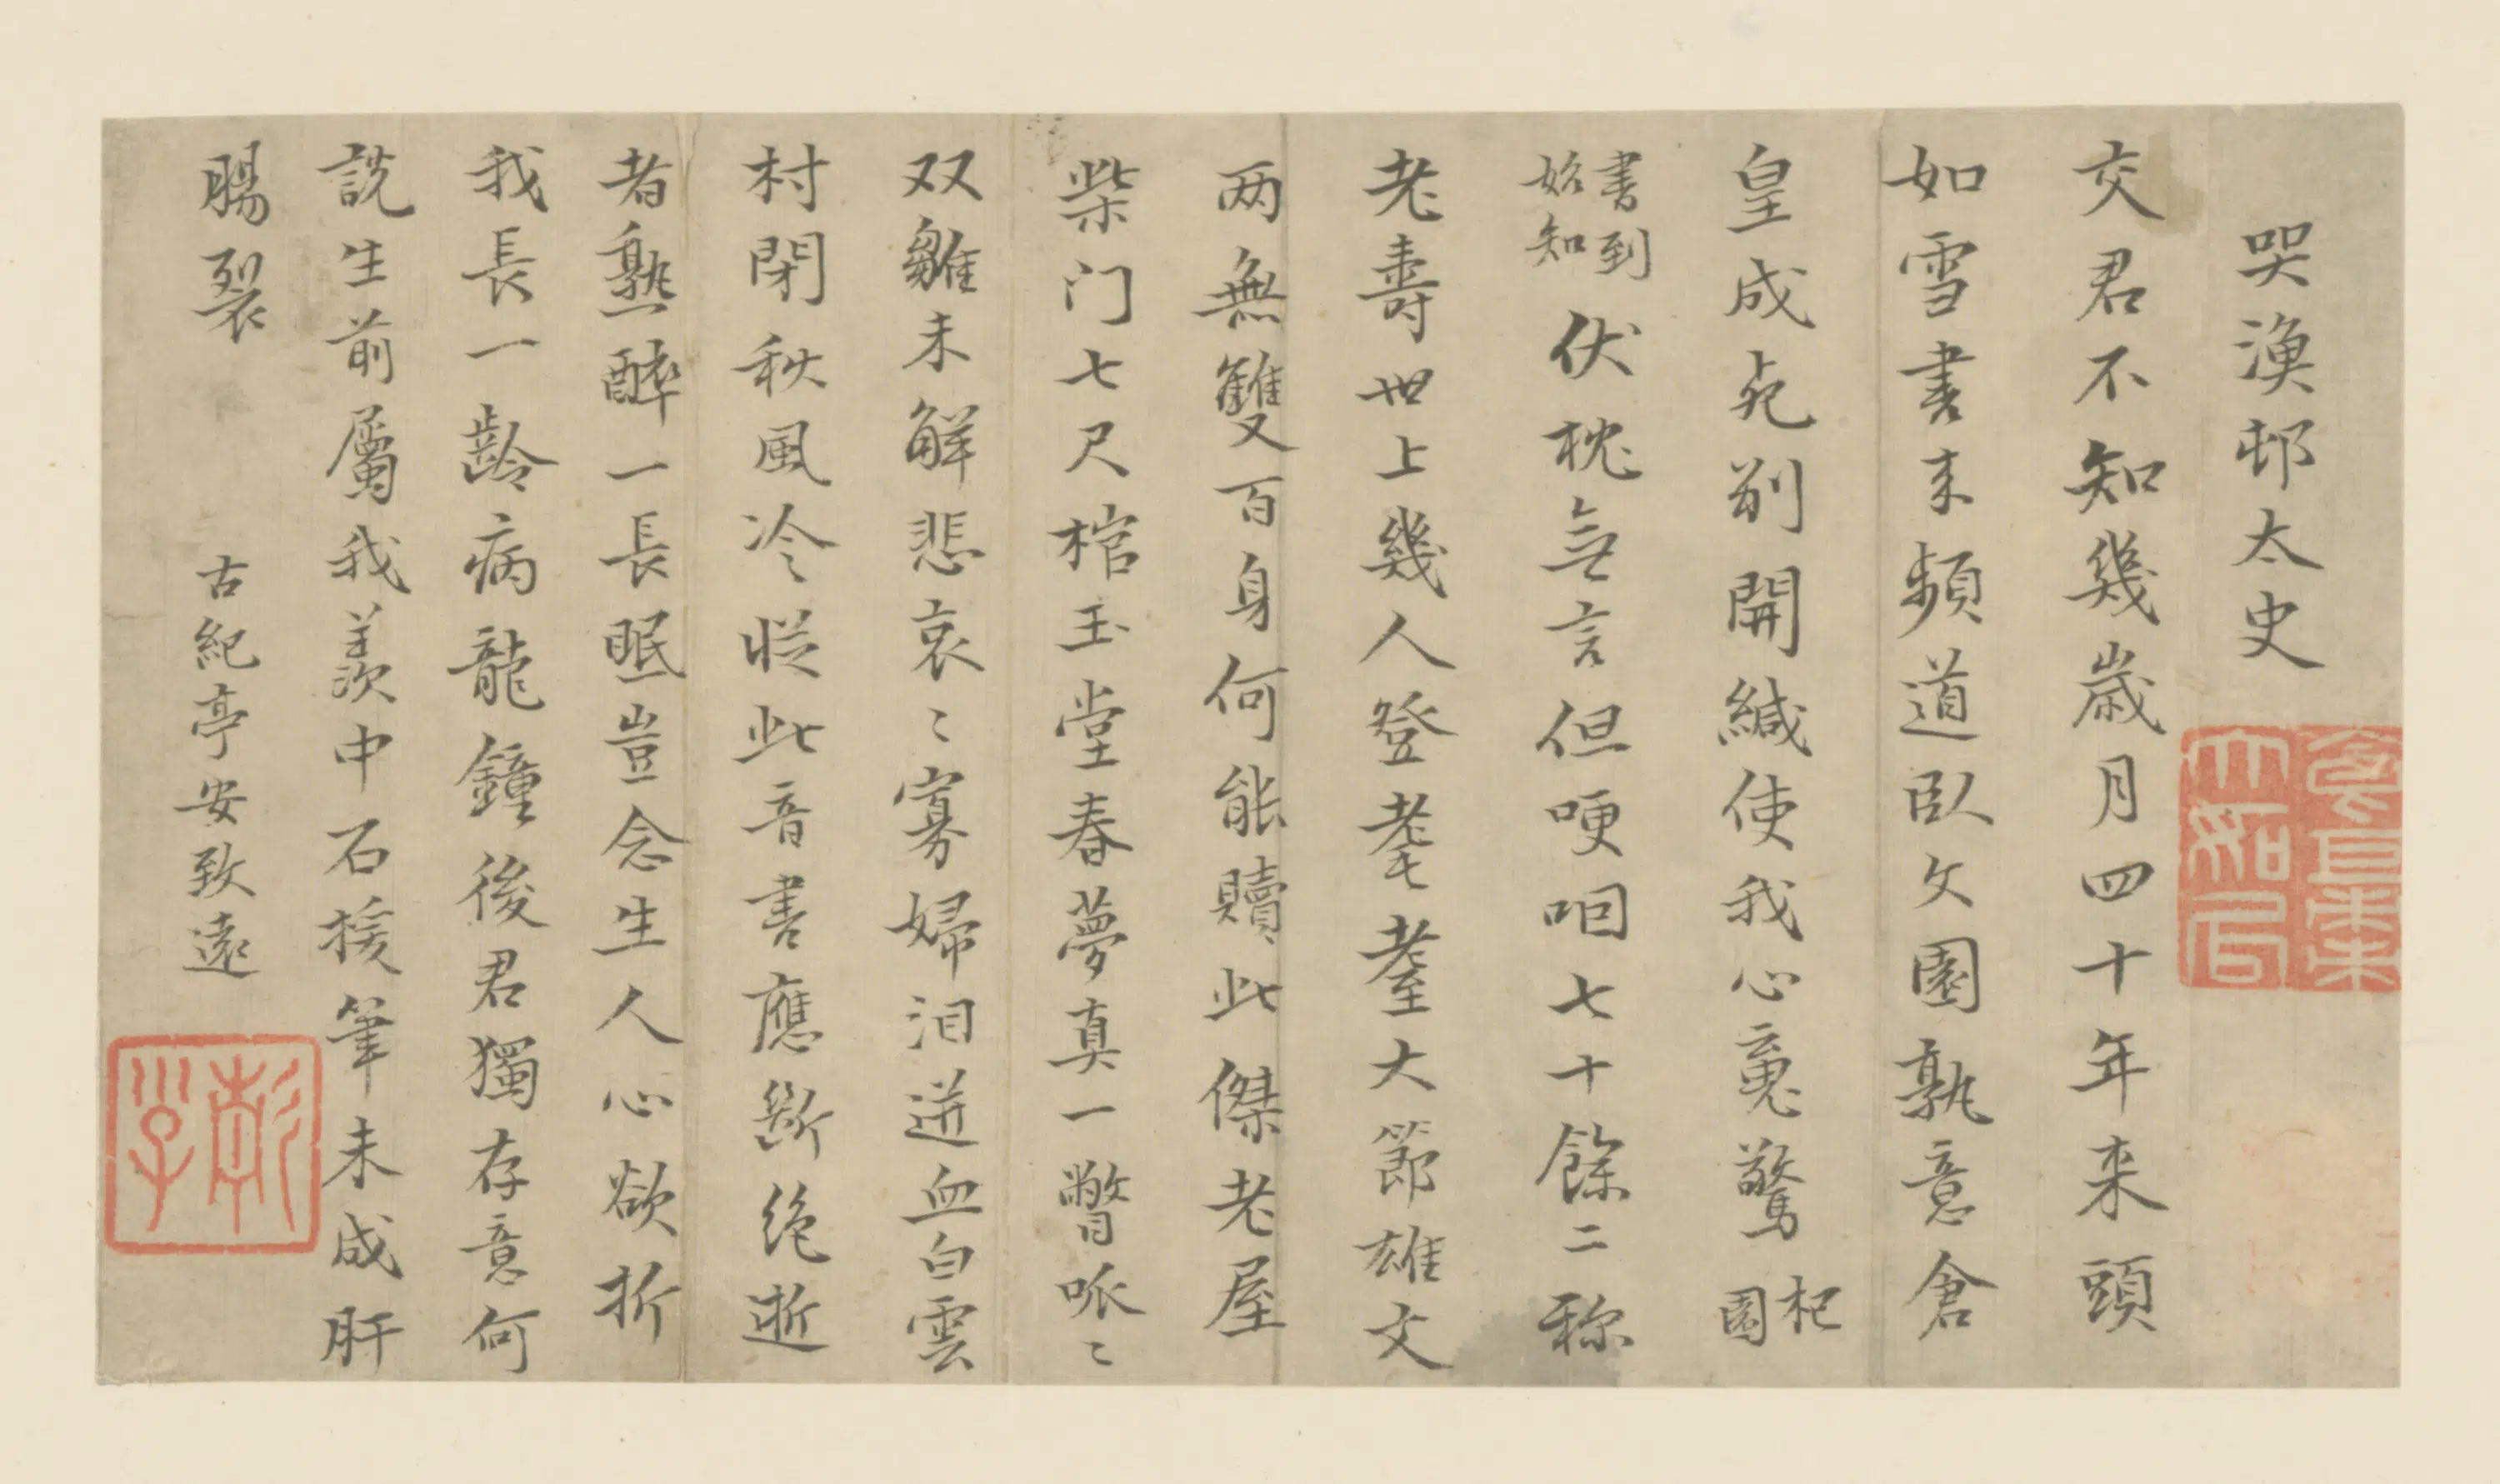 哭漁邨太史
交君不知幾歲月四十年来頭
如雪書来頻道臥文園孰意倉
皇成死別開緘使我心䰟驚杞園
書到始知伏枕無言但哽咽七十餘二称
老壽世上幾人登耄耋大節雄文
两無雙百身何能贖此傑老屋
柴门七尺棺玉堂春夢真一瞥呱〻
双雛未解悲哀〻寡婦泪迸血白雲
村閉秋風冷従此音書應斷绝逝
者熟醉一長眠豈念生人心欲折
我長一齡病龍鐘後君獨存意何
說生前屬我羨中石援筆未成肝
腸裂
古紀亭安致遠